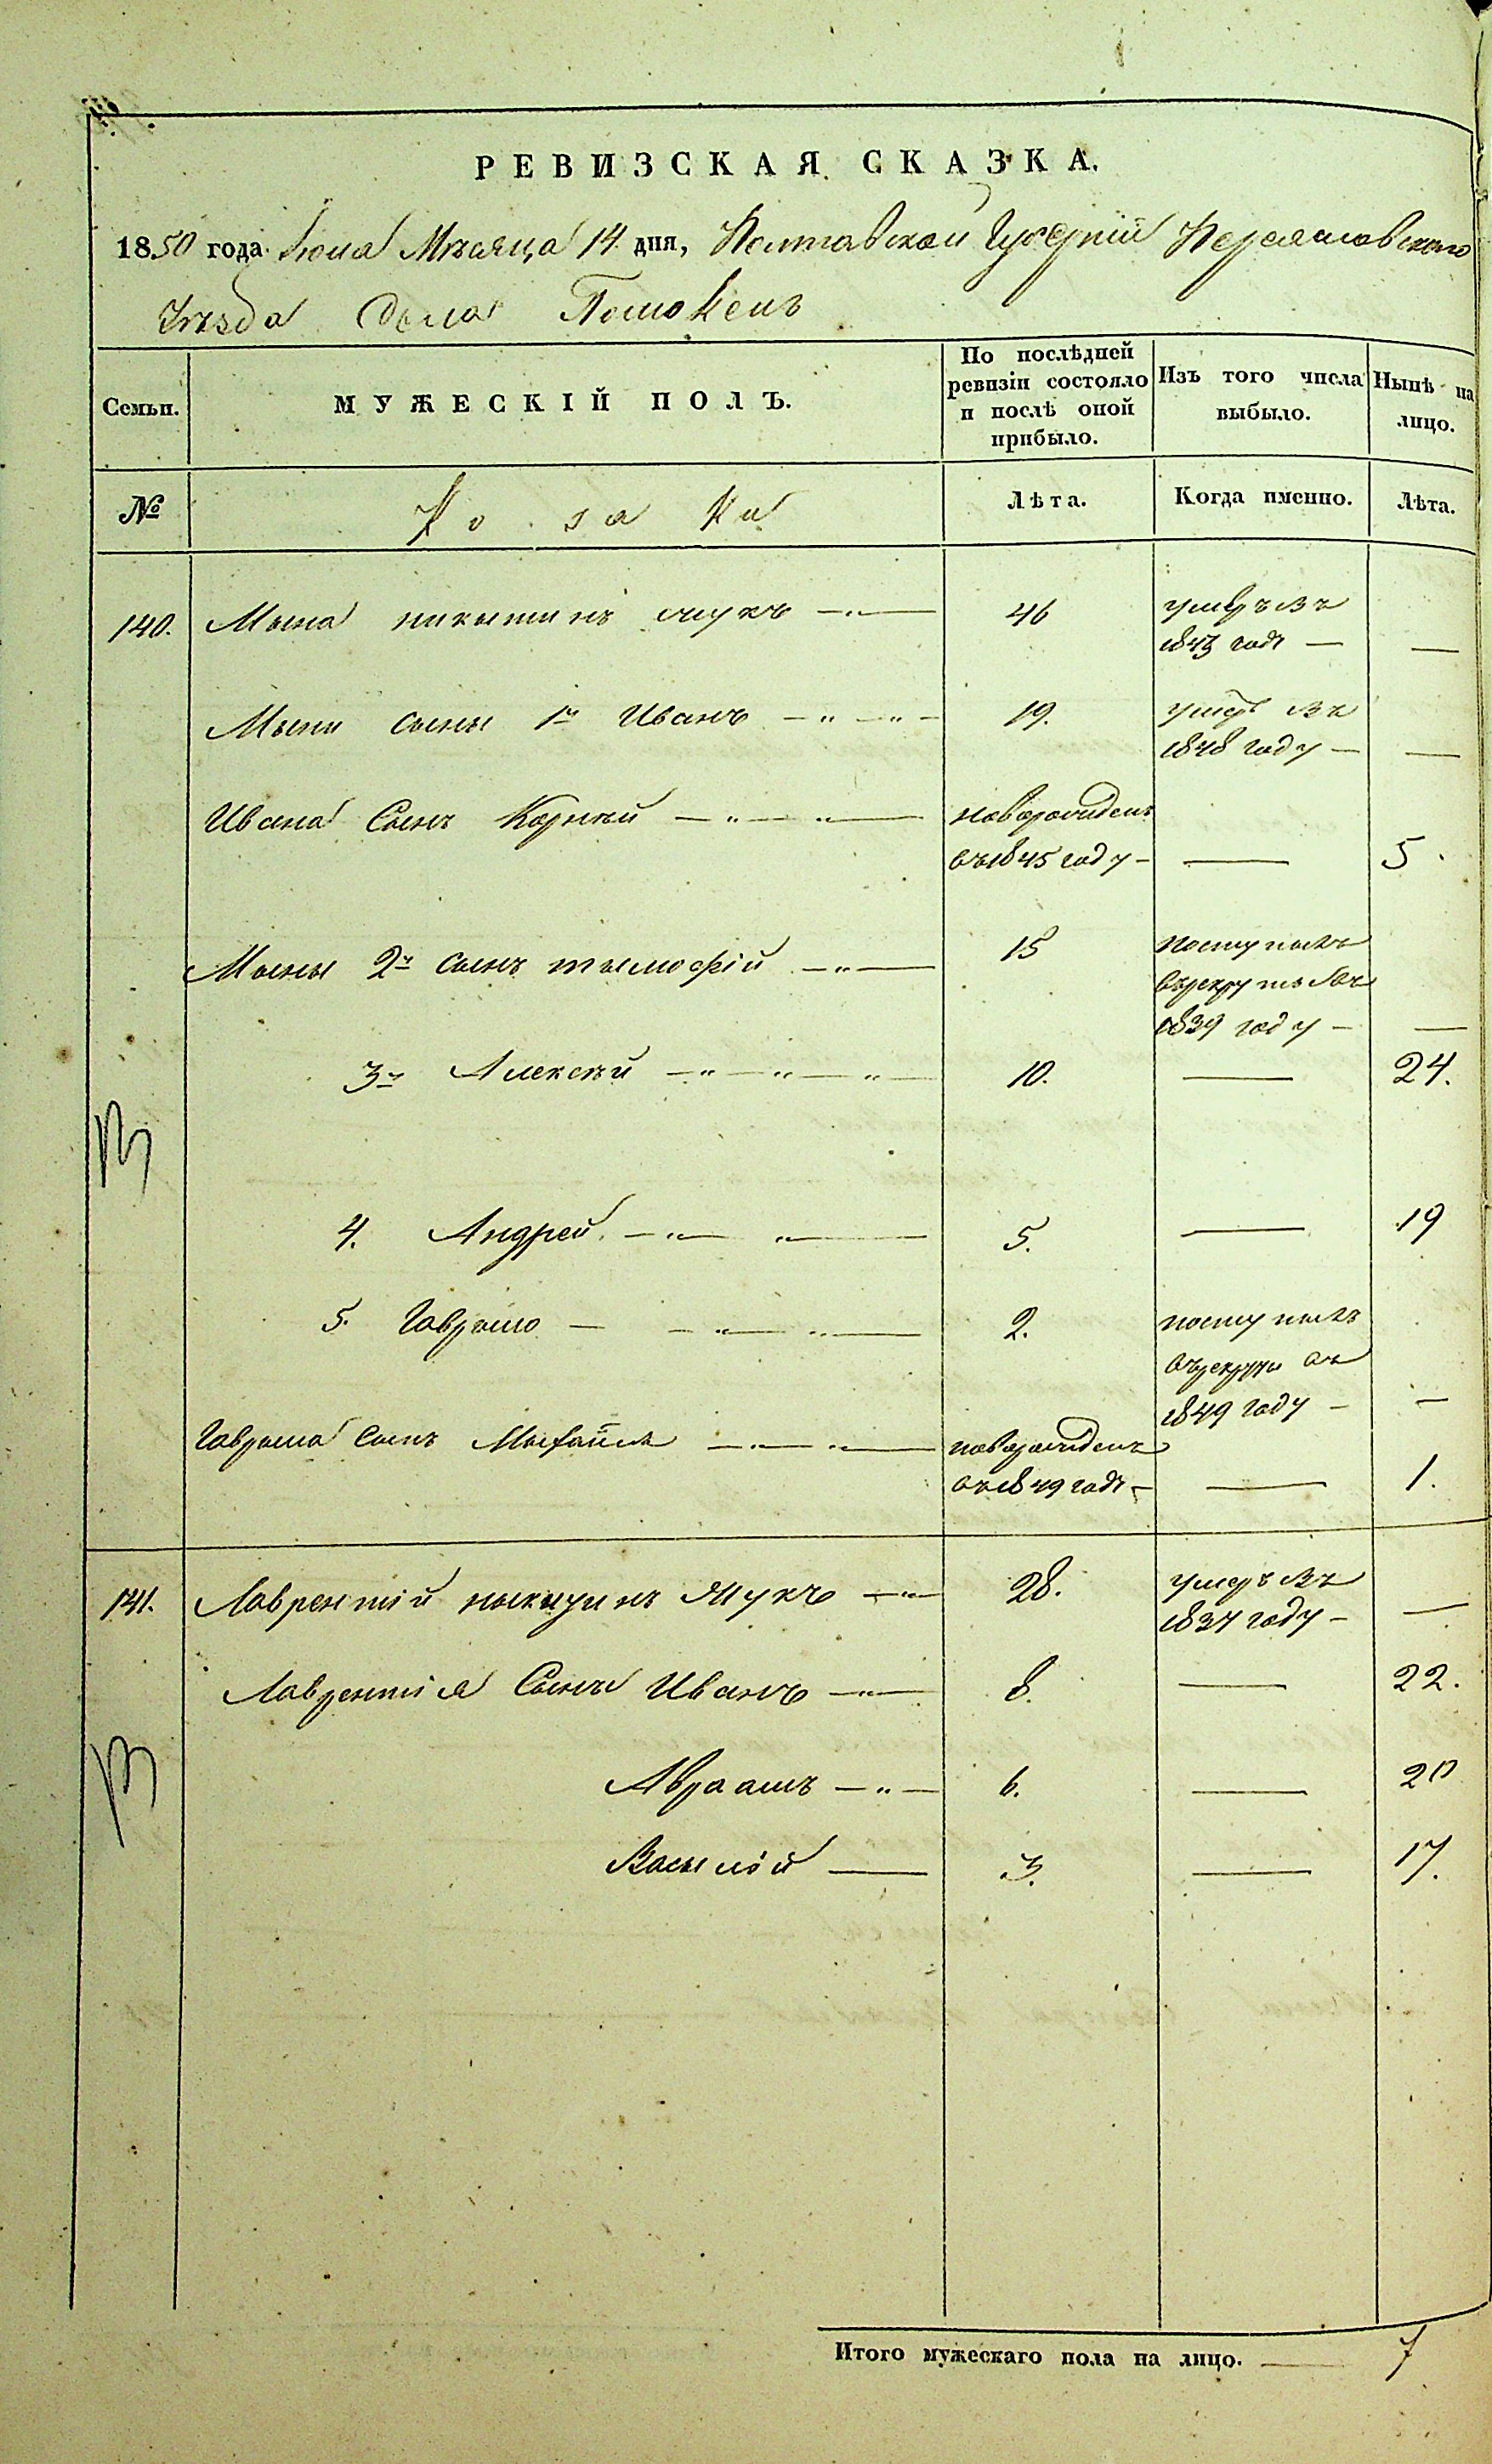 РЕВИЗСКАЯ СКАЗКА.
1850 года Iюня Мѣсяца 14 дня, Полтавской Губерніи Переяславского
Уѣзда Села Помоклей
Семьи. МУЖЕСКІЙ ПОЛЪ. По послѣдней ревизіи состояло и послѣ оной прибыло. Изъ того числа выбыло. Нынѣ на лицо.
№ Козаки Лѣта. Когда именно. Лѣта.
140. Мына никитинъ жукъ 46 умеръ въ
1843 годѣ —
Мыны сыны 1й Иванъ 19. умеръ въ
1848 году — —
Ивана Сынъ Корнѣй новорожденъ
въ 1845 году — — 5
Мыны 2й сынъ тымофій 15 поступилъ
въ рекруты въ
1839 году — —
3й Алексѣй 10. — 24.
4. Андрей 5. — 19
5. Гаврыло 2. поступилъ
въ рекруты въ
1849 году — —
Гаврыла Сынъ Михаилъ новорожденъ
въ 1849 годѣ — — 1.
141. Лаврентій никитинъ Жукъ 28. умеръ въ
1837 году — —
Лаврентія Сыны Иванъ 8. — 22.
Авраамъ 6. — 20
Васылій 3. — 17.
Итого мужескаго пола на лицо. — 7